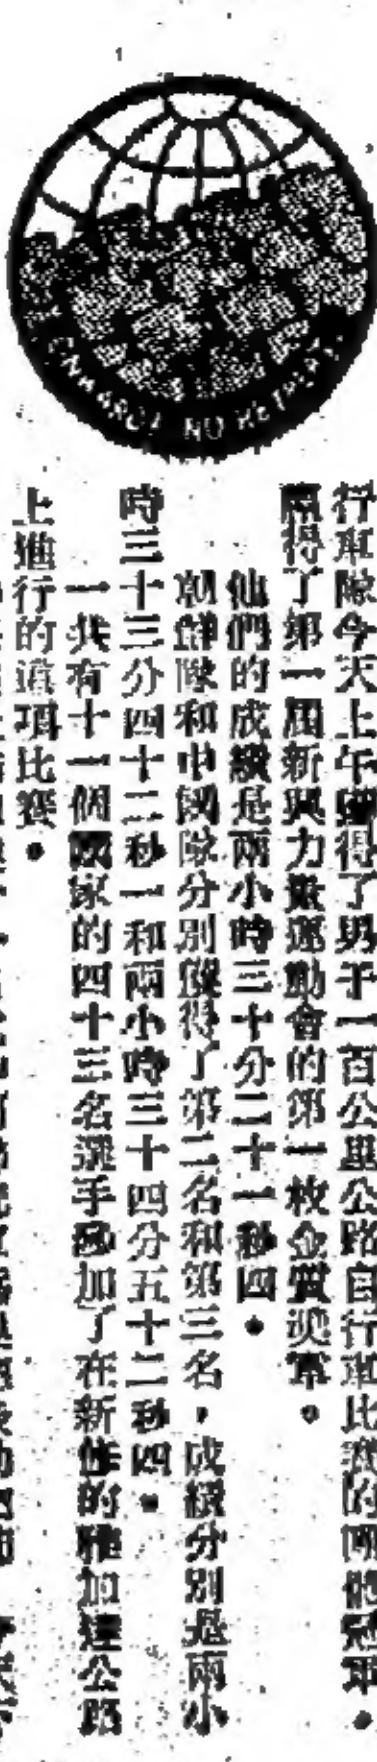 ONWARD! NO RETREAT
行車隊今天上午贏得了男子一百公里公路自行車比賽的團體冠軍。
贏得了第一屆新興力量運動會的第一枚金質獎章。
他們的成績是兩小時三十分二十一秒四。
朝鮮隊和中國隊分別獲得了第二名和第三名，成績分別是兩小
時三十三分四十二秒一和兩小時三十四分五十二秒四。
一共有十一個國家的四十三名選手參加了在新修的雅加達公路
上進行的這項比賽。